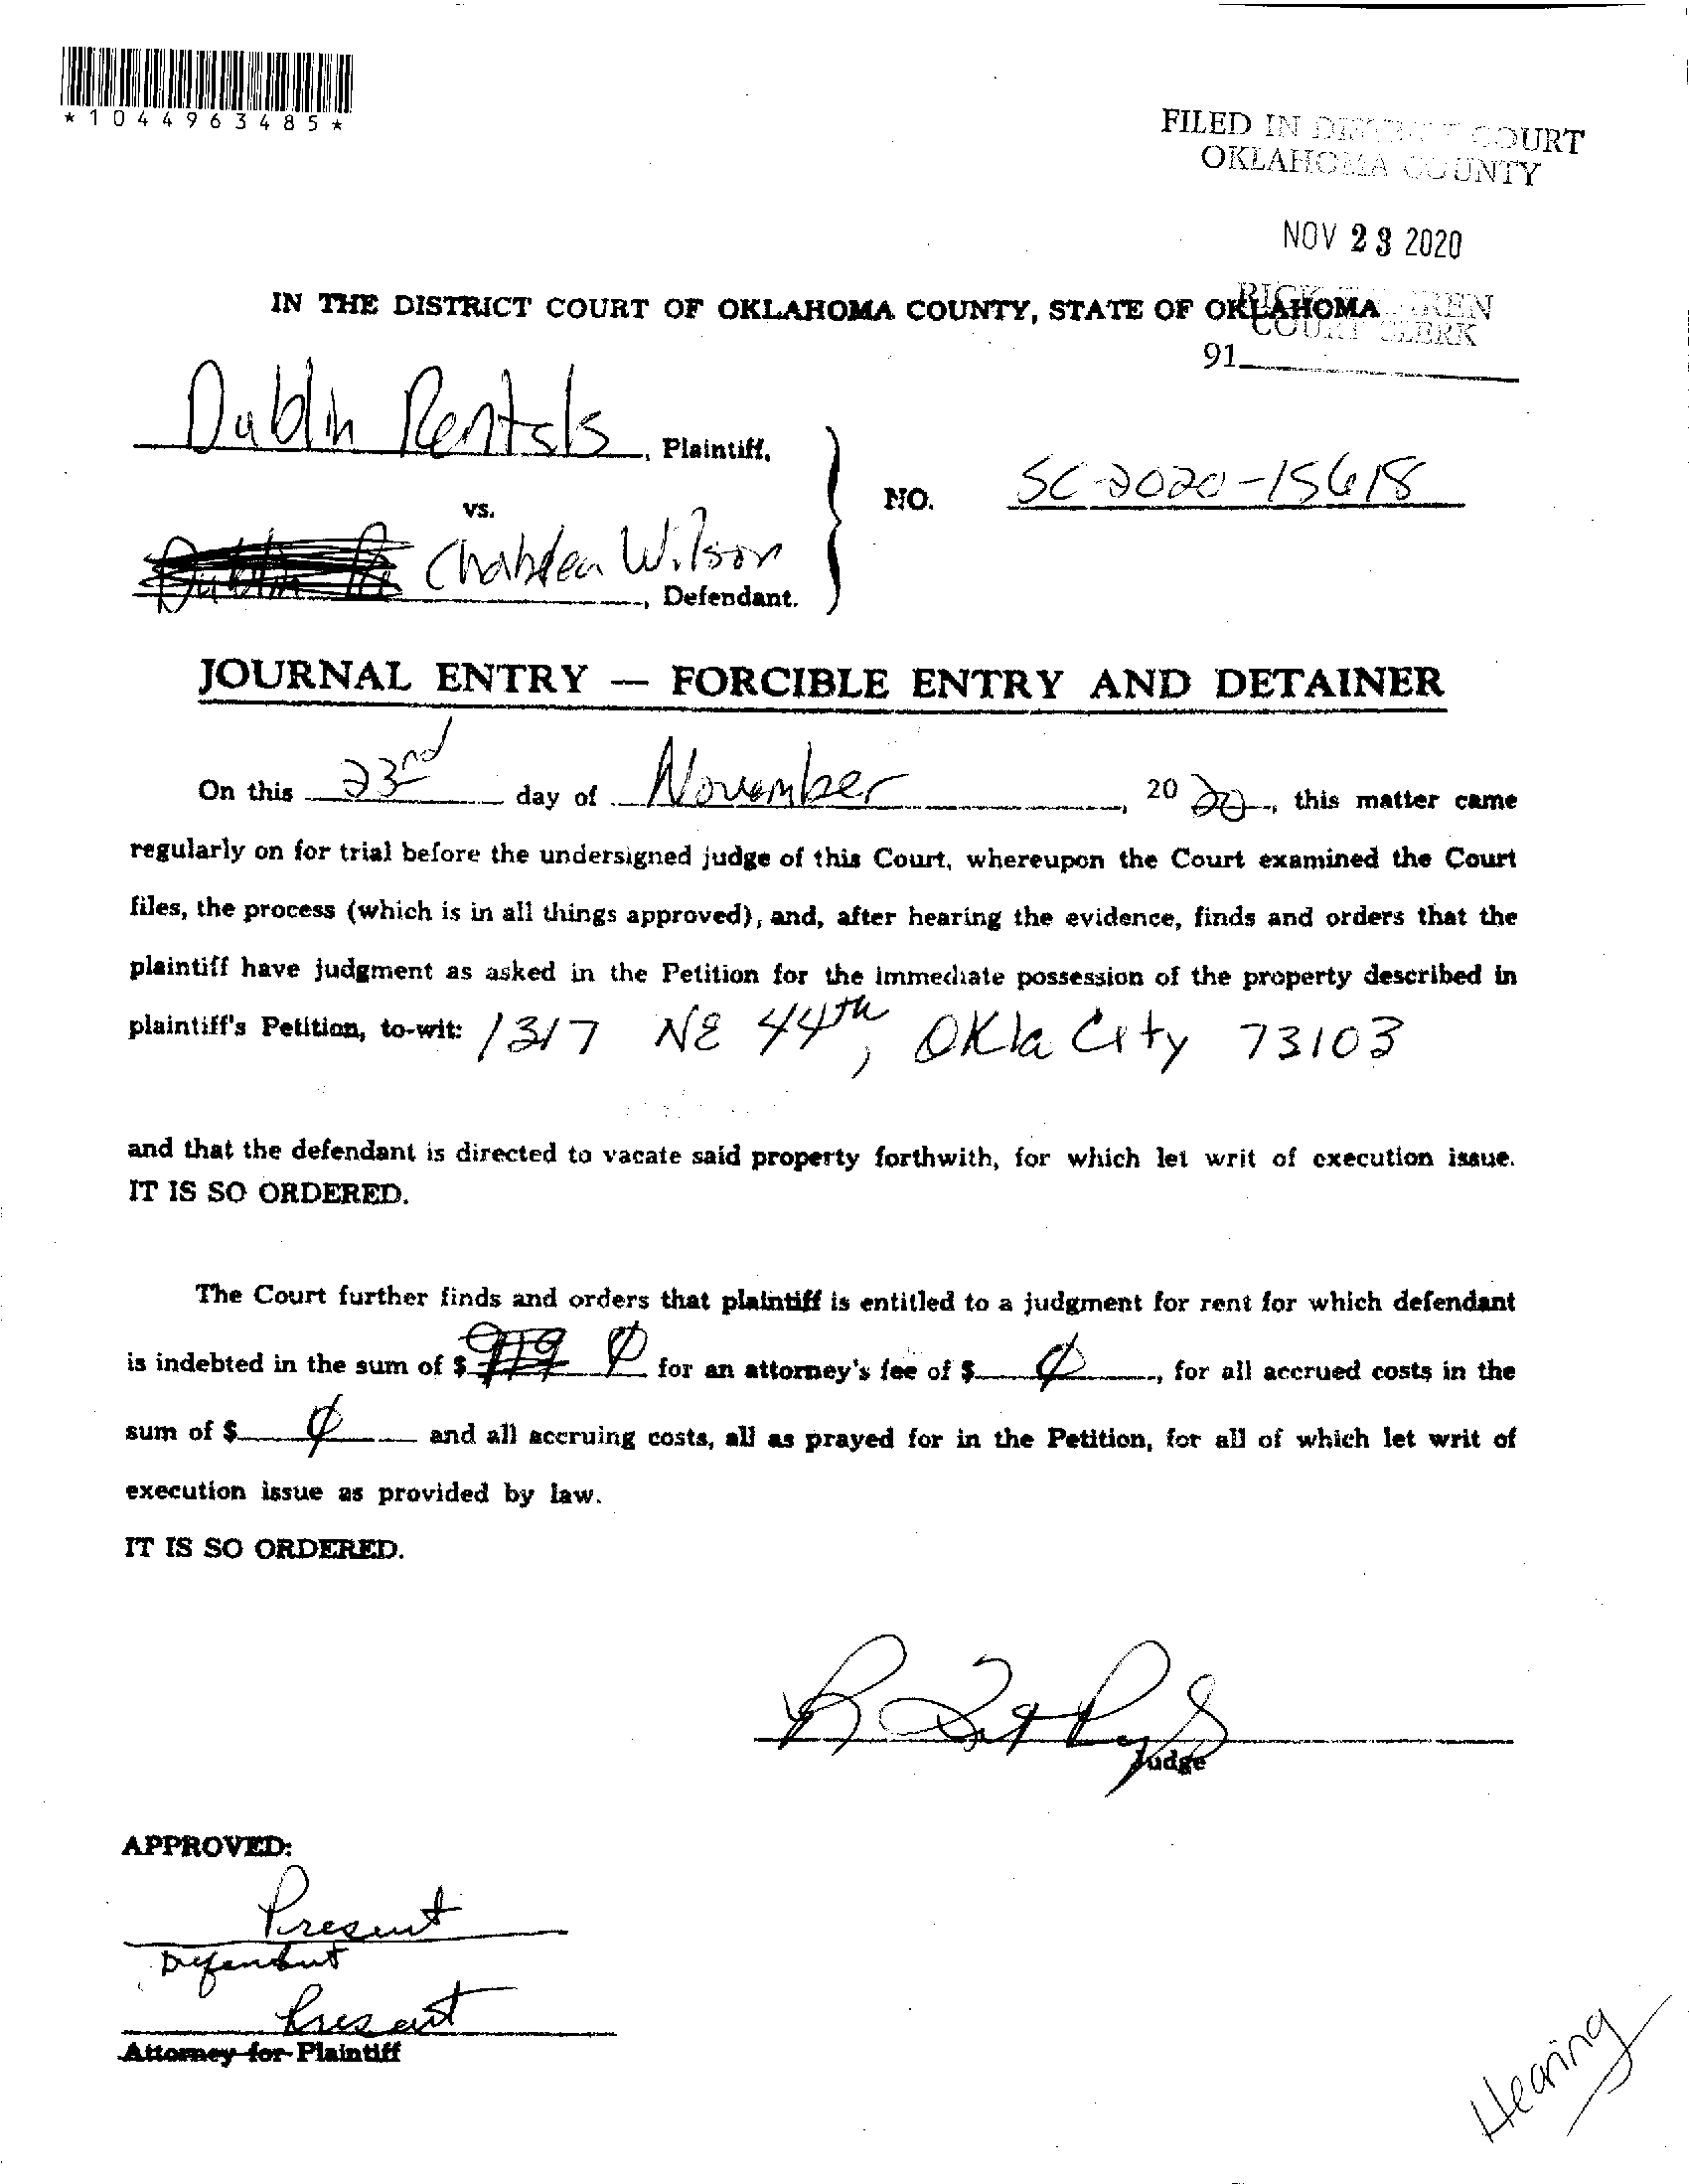 *1044963485*
FILED IN DISTRICT COURT
OKLAHOMA COUNTY
NOV 23 2020
RICK WARREN
COURT CLERK
IN THE DISTRICT COURT OF OKLAHOMA COUNTY, STATE OF OKLAHOMA
91
Dublin Rentals, Plaintiff,
vs.
NO. SC-2020-15618
Wilson
Defendant.
JOURNAL ENTRY — FORCIBLE ENTRY AND DETAINER
On this 23rd day of November, 20 20, this matter came
regularly on for trial before the undersigned judge of this Court, whereupon the Court examined the Court
files, the process (which is in all things approved), and, after hearing the evidence, finds and orders that the
plaintiff have judgment as asked in the Petition for the immediate possession of the property described in
plaintiff's Petition, to-wit: 1317 NE 44th, Okla City 73103
and that the defendant is directed to vacate said property forthwith, for which let writ of execution issue.
IT IS SO ORDERED.
The Court further finds and orders that plaintiff is entitled to a judgment for rent for which defendant
is indebted in the sum of $ 0 for an attorney's fee of $ 0, for all accrued costs in the
sum of $ 0 and all accruing costs, all as prayed for in the Petition, for all of which let writ of
execution issue as provided by law.
IT IS SO ORDERED.
Judge
APPROVED:
Present
Defendant
Present
Attorney for Plaintiff
Hearing